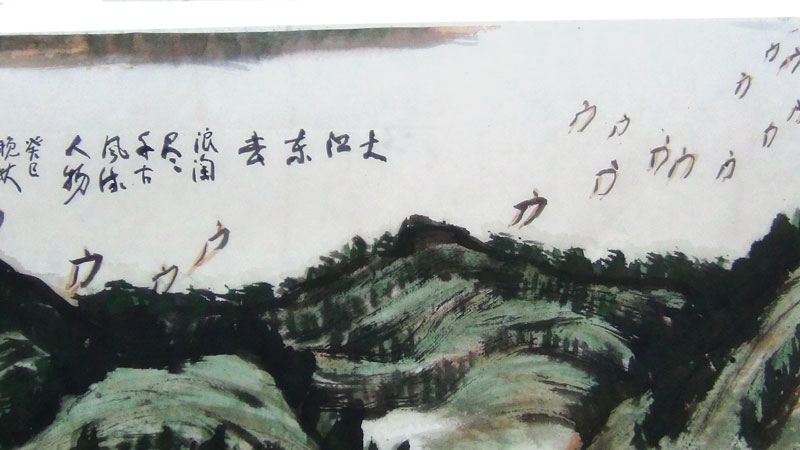 大江东去
浪淘
尽
千古
风流
人物
癸巳